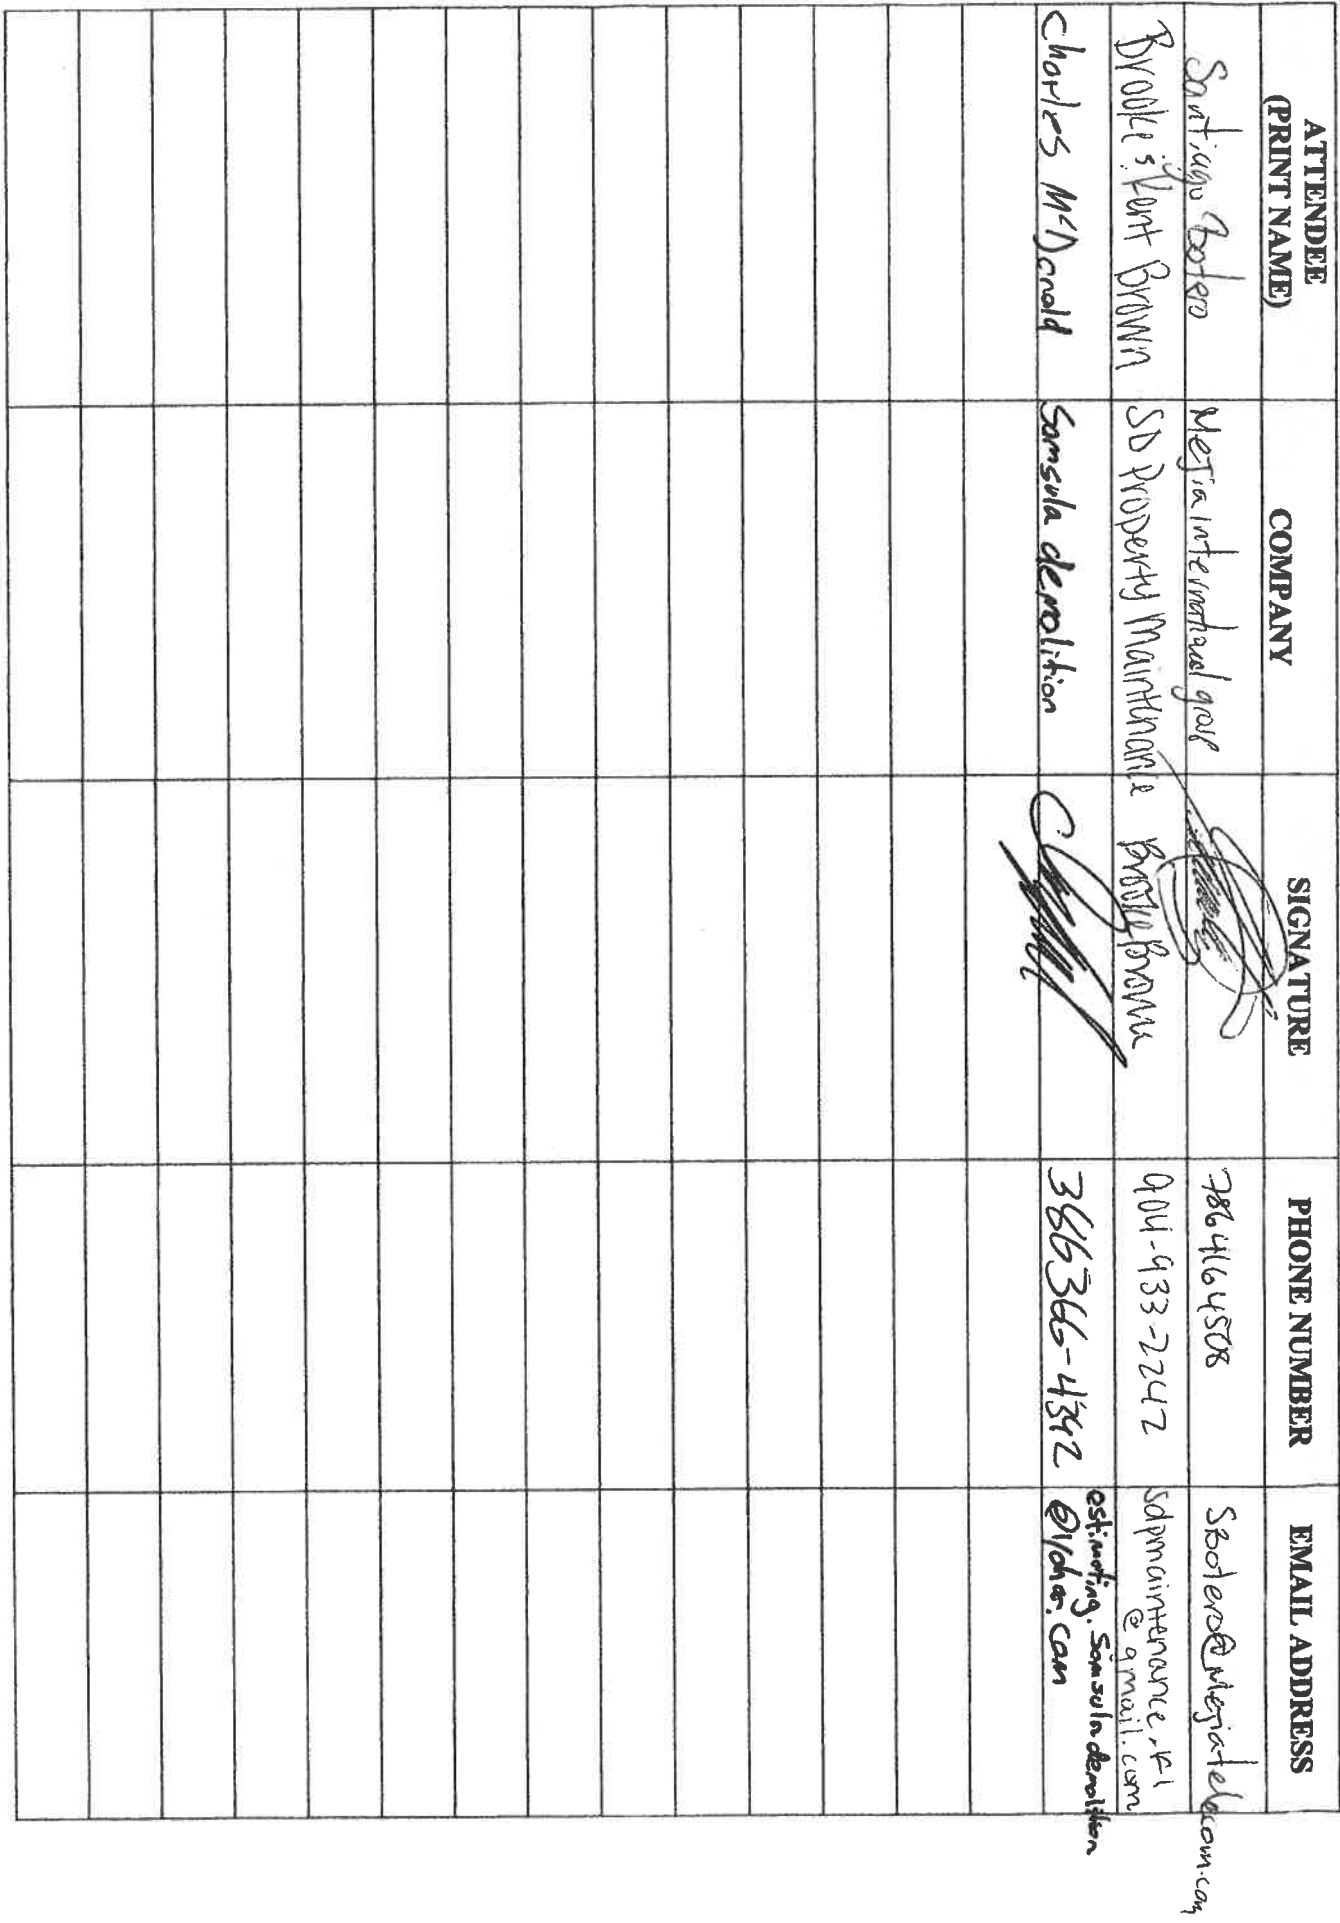 ATTENDEE
(PRINT NAME)
COMPANY
SIGNATURE
PHONE NUMBER
EMAIL ADDRESS
Santiago Botero
Mejia international group
7864164508
SBotero@Mejiatelecom.com
Brooke & Kent Brown
SD Property Maintenance
Brooke Brown
904-933-2247
sdpmaintenance.fl
@gmail.com
Charles McDonald
Samsula demolition
386366-4392
estimating.Samsulademolition
@Yahoo.com